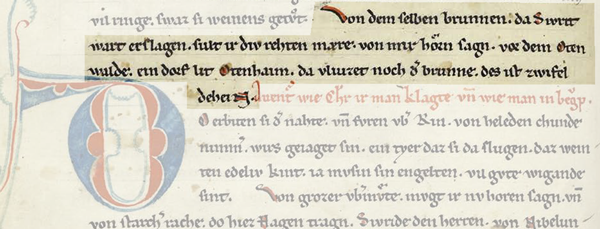 vil ringe. swaz si weinens getvͦt. Von dem selben brunnen. da Sivrit
wart erslagen. sult ir div rehten mære. von mir hôrn sagn. vor dem Oten
walde. ein dorf lit Otenhaim. da vliuzet noch dʾ brunne. des ist zwifel
dehein. Auentʾ wie Chr ir man klagte vn̄ wie man in begrp.
DO erbiten si dʾ nahte. vn̄ fvren vbʾ Rin. von heleden chunde
nimmʾ. wirs geiaget sin. ein tyer daz si da slugen. daz wein
ten edeliv kint. ia mvsin sin engelten. vil gvte wigande
sint. Von grozer vbʾmvͦte. mvgt ir nv horen sagn. vn̄
von starchʾ rache. do hiez Hagen tragn. Sivride den herren. von Nibelun